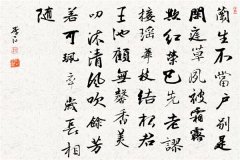 蘭生不當戶別是
閒庭草夙被霜露
欺紅榮已先老謬
接瑤華枝結根君
王池顧無馨香美
叨沐清風吹餘芳
若可珮卒歲長相
隨